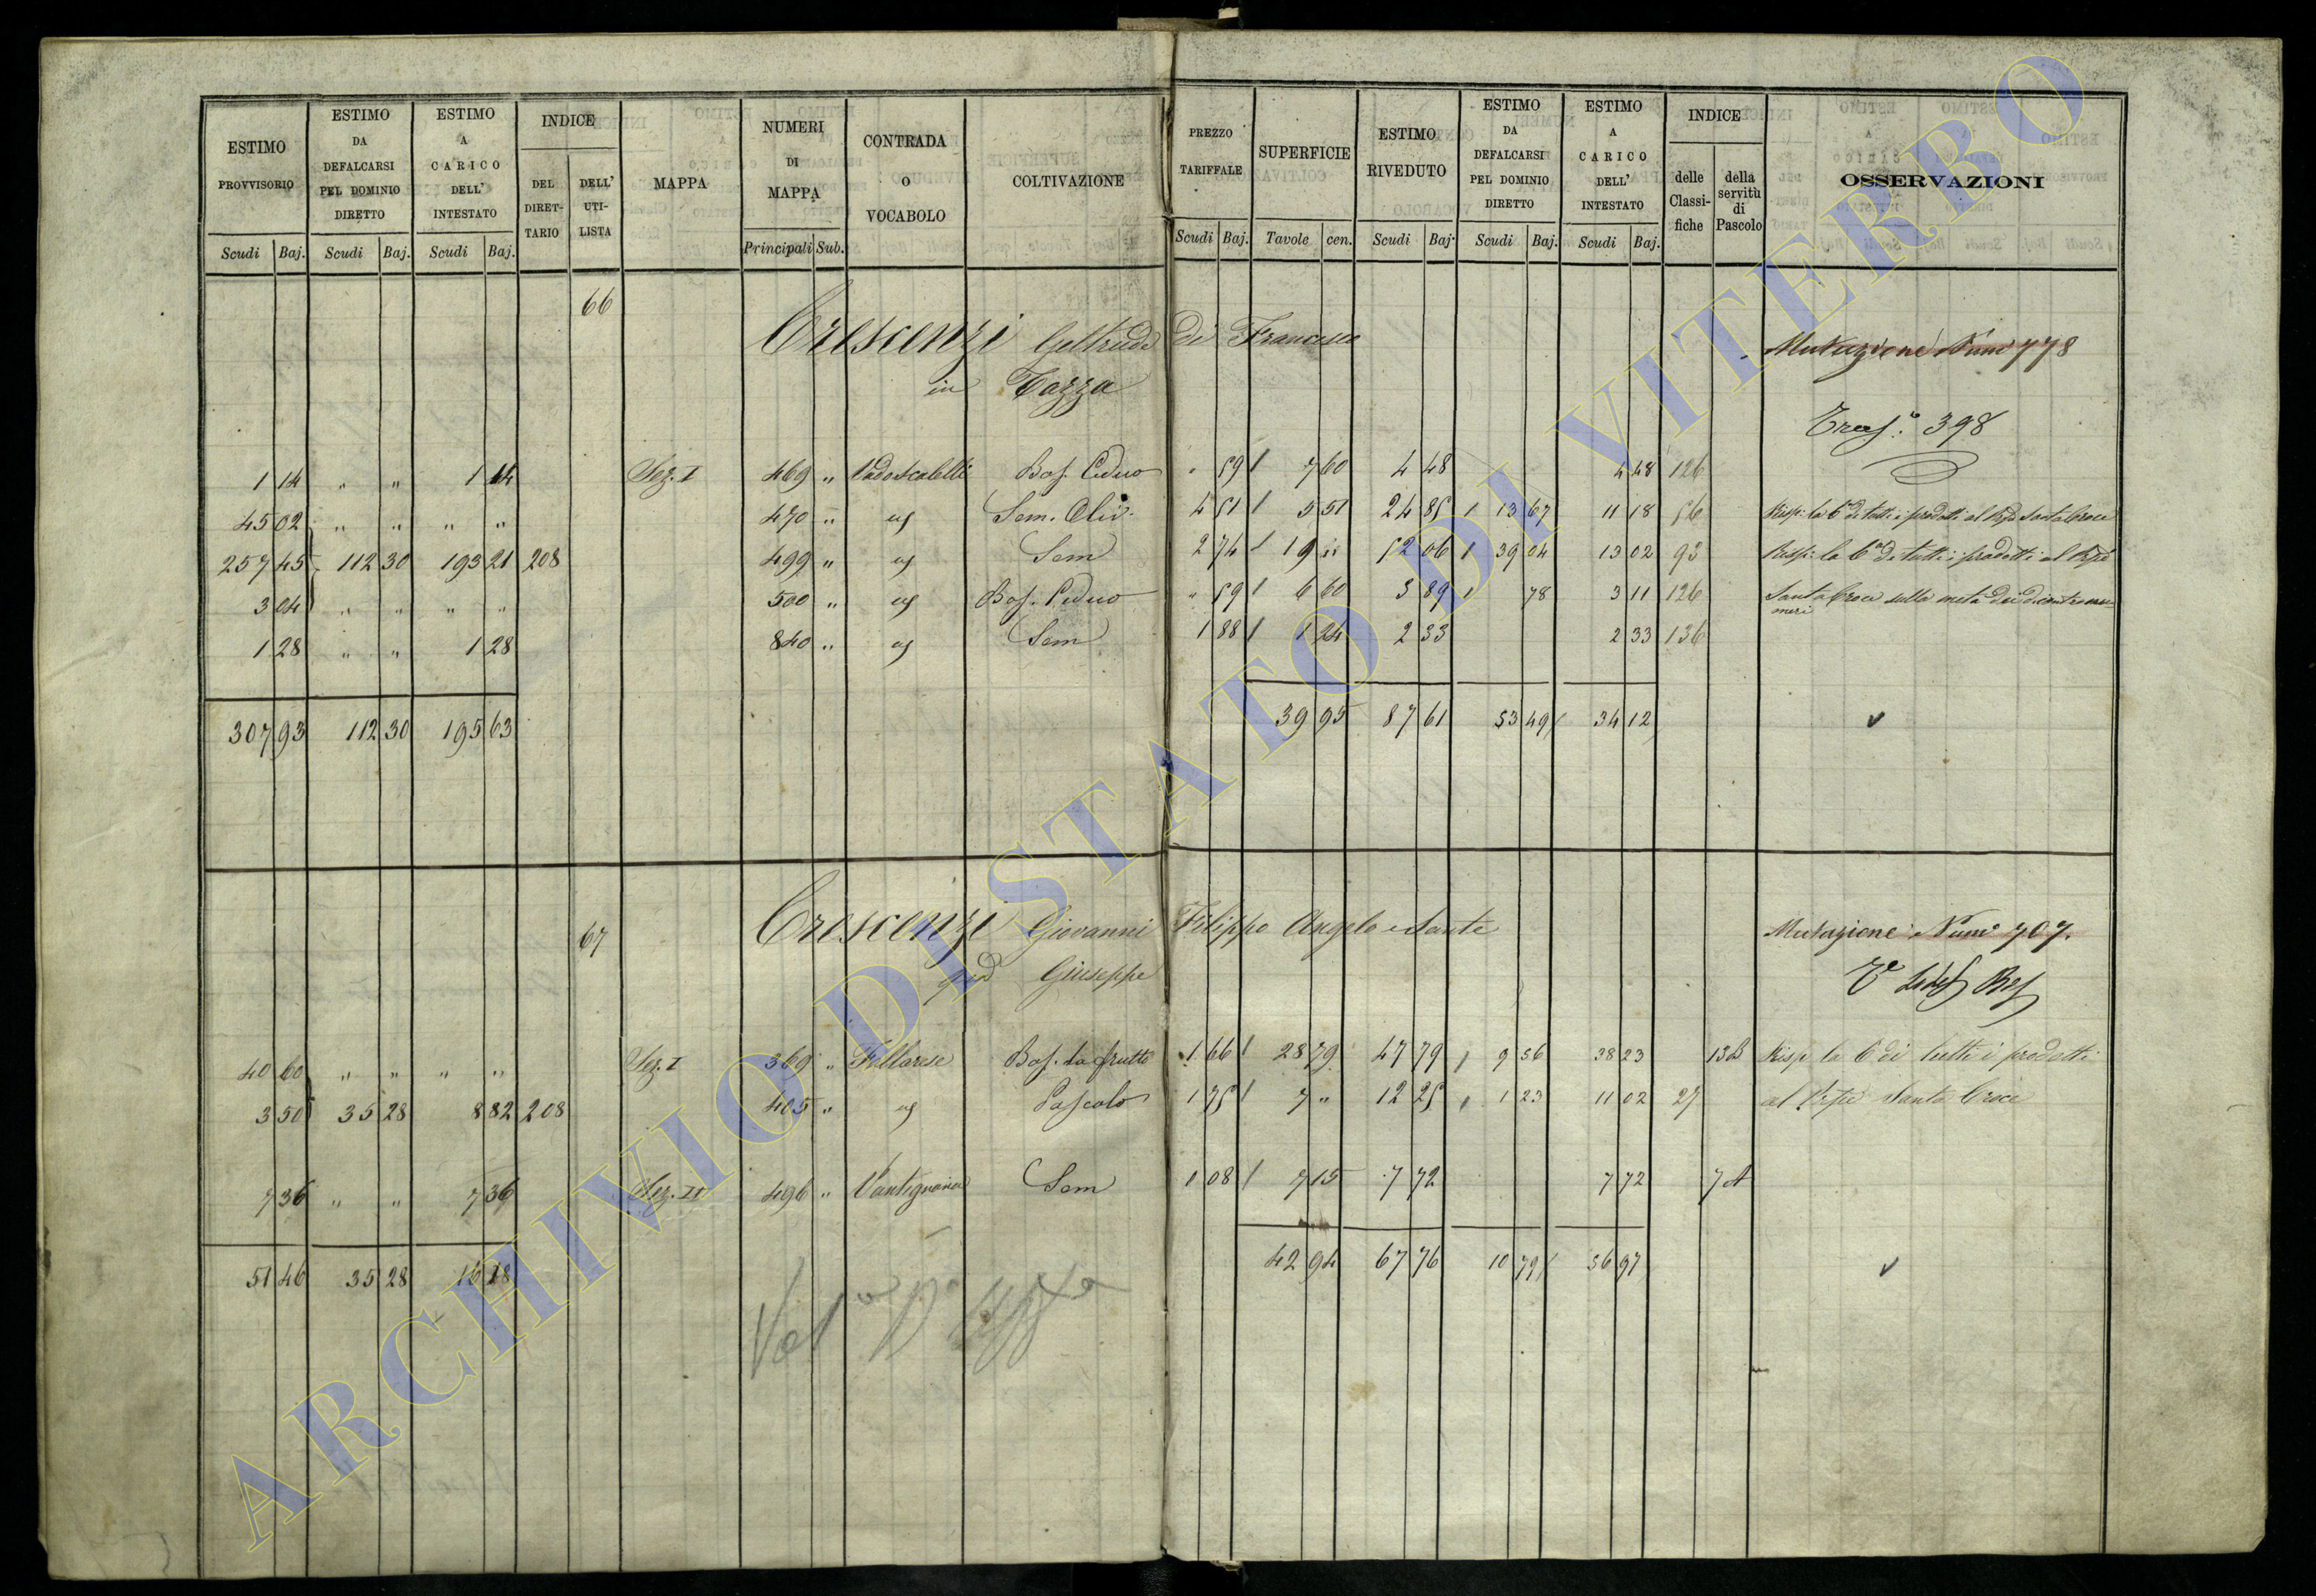 ESTIMO PROVVISORIO
Scudi Baj.
ESTIMO DA DEFALCARSI PEL DOMINIO DIRETTO
Scudi Baj.
ESTIMO A CARICO DELL' INTESTATO
Scudi Baj.
INDICE
DEL DIRET-TARIO
DELL' UTI-LISTA
MAPPA
NUMERI DI MAPPA
Principali Sub.
CONTRADA O VOCABOLO
COLTIVAZIONE
PREZZO TARIFFALE
Scudi Baj.
SUPERFICIE
Tavole cen.
ESTIMO RIVEDUTO
Scudi Baj.
ESTIMO DA DEFALCARSI PEL DOMINIO DIRETTO
Scudi Baj.
ESTIMO A CARICO DELL' INTESTATO
Scudi Baj.
INDICE
delle Classi-fiche
della servitù di Pascolo
OSSERVAZIONI
66
Crescenzi Geltrude di Francesco
in Tozza
Mutazione Num 778
Tras. 398
1 14 " " 1 14 Sez. I 469 " Bos. Ceduo " 59 7 60 4 48 4 48 126
45 02 " " " " 470 " Sem. Oliv. 4 51 5 51 24 85 13 67 11 18 56 Risp. la 6a di tutti i prodotti al Santa Croce
257 45 112 30 193 21 208 499 " Sem 2 74 19 " 52 06 39 04 13 02 93 Risp. la 6a di tutti i prodotti al
3 04 " " " " 500 " Bos. Ceduo " 59 6 60 3 89 78 3 11 126 Santa Croce sulla metà dei
1 28 " " 1 28 840 " Sem 1 88 1 24 2 33 2 33 136
307 93 112 30 195 63 39 95 87 61 53 49 34 12
67
Crescenzi Giovanni Filippo Angelo e Sante
qud Giuseppe
Mutazione Num 707.
40 60 " " " " Sez. I 369 " Bos. da frutto 1 66 28 79 47 79 9 56 38 23 13 B Risp la 6 di tutti i prodotti
3 50 35 28 8 82 208 405 " Pascolo 1 75 7 " 12 25 1 23 11 02 27 al Santa Croce
7 36 " " 7 36 Sez. II 496 " Vantignana Sem 1 08 7 15 7 72 7 72 7 A
51 46 35 28 16 18 42 94 67 76 10 79 56 97
ARCHIVIO DI STATO DI VITERBO